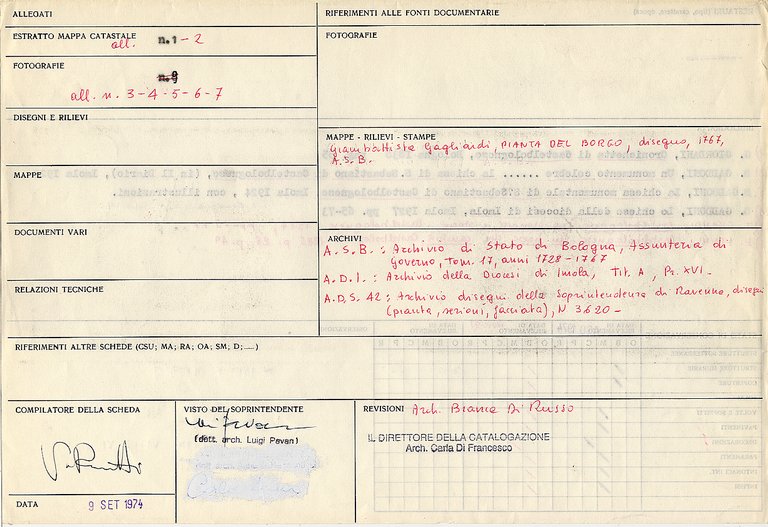 ALLEGATI
ESTRATTO MAPPA CATASTALE
all. n.1 - 2
FOTOGRAFIE
n.9
all. n. 3-4-5-6-7
DISEGNI E RILIEVI
MAPPE
DOCUMENTI VARI
RELAZIONI TECNICHE
RIFERIMENTI ALLE FONTI DOCUMENTARIE
FOTOGRAFIE
MAPPE - RILIEVI - STAMPE
Giambattista Gagliardi, PIANTA DEL BORGO, disegno, 1767,
A.S.B.
ARCHIVI
A.S.B.: Archivio di Stato di Bologna, Assunteria di
Governo, Tom. 17, anni 1728-1767
A.D.I.: Archivio della Diocesi di Imola, Tit. A, Pr. XVI-
A.D.S. 42: Archivio disegni della Soprintendenza di Ravenna, disegni
(pianta, sezioni, facciata), N 3620-
RIFERIMENTI ALTRE SCHEDE (CSU; MA; RA; OA; SM; D;.....)
COMPILATORE DELLA SCHEDA
DATA 9 SET 1974
VISTO DEL SOPRINTENDENTE
(dott. arch. Luigi Pavan)
REVISIONI Arch. Bianca Di Russo
IL DIRETTORE DELLA CATALOGAZIONE
Arch. Carla Di Francesco